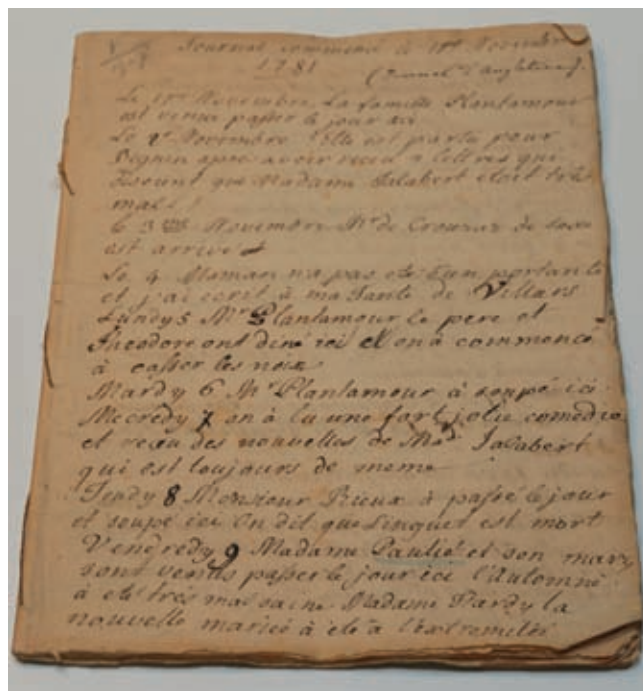 Journal commencé le 1er Novembre
1781
Le 1er Novembre La famille Plantamour
est venue passer le jour ici
Le 2d Novembre Elle est partie pour
apres avoir recu 2 lettres qui
disoient que Madame Jalabert etoit très
mal !
Le 3me Novembre Mr de Crousaz de
est arrivé
Le 4 Maman n'a pas eté bien portante
et j'ai ecrit à ma Tante de Villars
Lundy 5 Mr Plantamour le pere et
Theodore ont diné ici et on à commencé
à casser les noix
Mardy 6 Mr Plantamour à soupé ici
Mecredy 7 on à lu une fort jolie comedie
et recu des nouvelles de Made Jalabert
qui est toujours de meme
Jeudy 8 Monsieur Rieux à passé le jour
et soupé ici On dit que Linguet est mort
Vendredy 9 Madame Paulié et son mary
sont venus passer le jour ici l'Automne
à eté très mal saine Madame Hardy la
nouvelle mariée à eté a l'extremitée